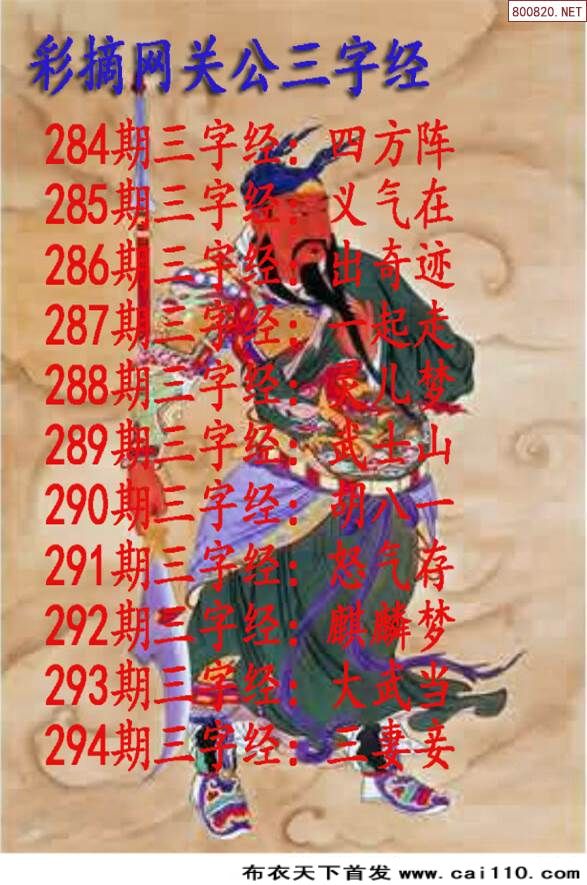 800820.NET
彩摘网关公三字经
284期三字经：四方阵
285期三字经：义气在
286期三字经：出奇迹
287期三字经：一起走
288期三字经：灵儿梦
289期三字经：武士山
290期三字经：胡八一
291期三字经：怒气存
292期三字经：麒麟梦
293期三字经：大武当
294期三字经：三妻妾
布衣天下首发 www.cai110.com